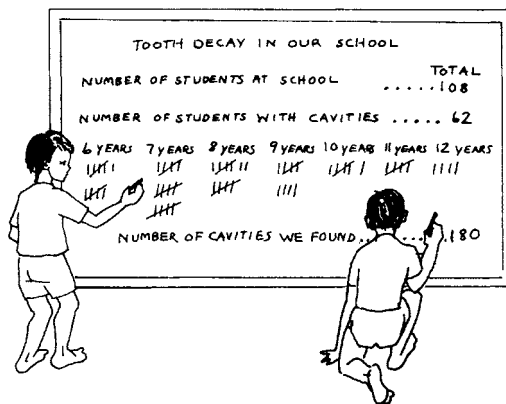 TOOTH DECAY IN OUR SCHOOL
TOTAL
NUMBER OF STUDENTS AT SCHOOL ......108
NUMBER OF STUDENTS WITH CAVITIES ..... 62
6 YEARS 7 YEARS 8 YEARS 9 YEARS 10 YEARS 11 YEARS 12 YEARS
NUMBER OF CAVITIES WE FOUND.........180